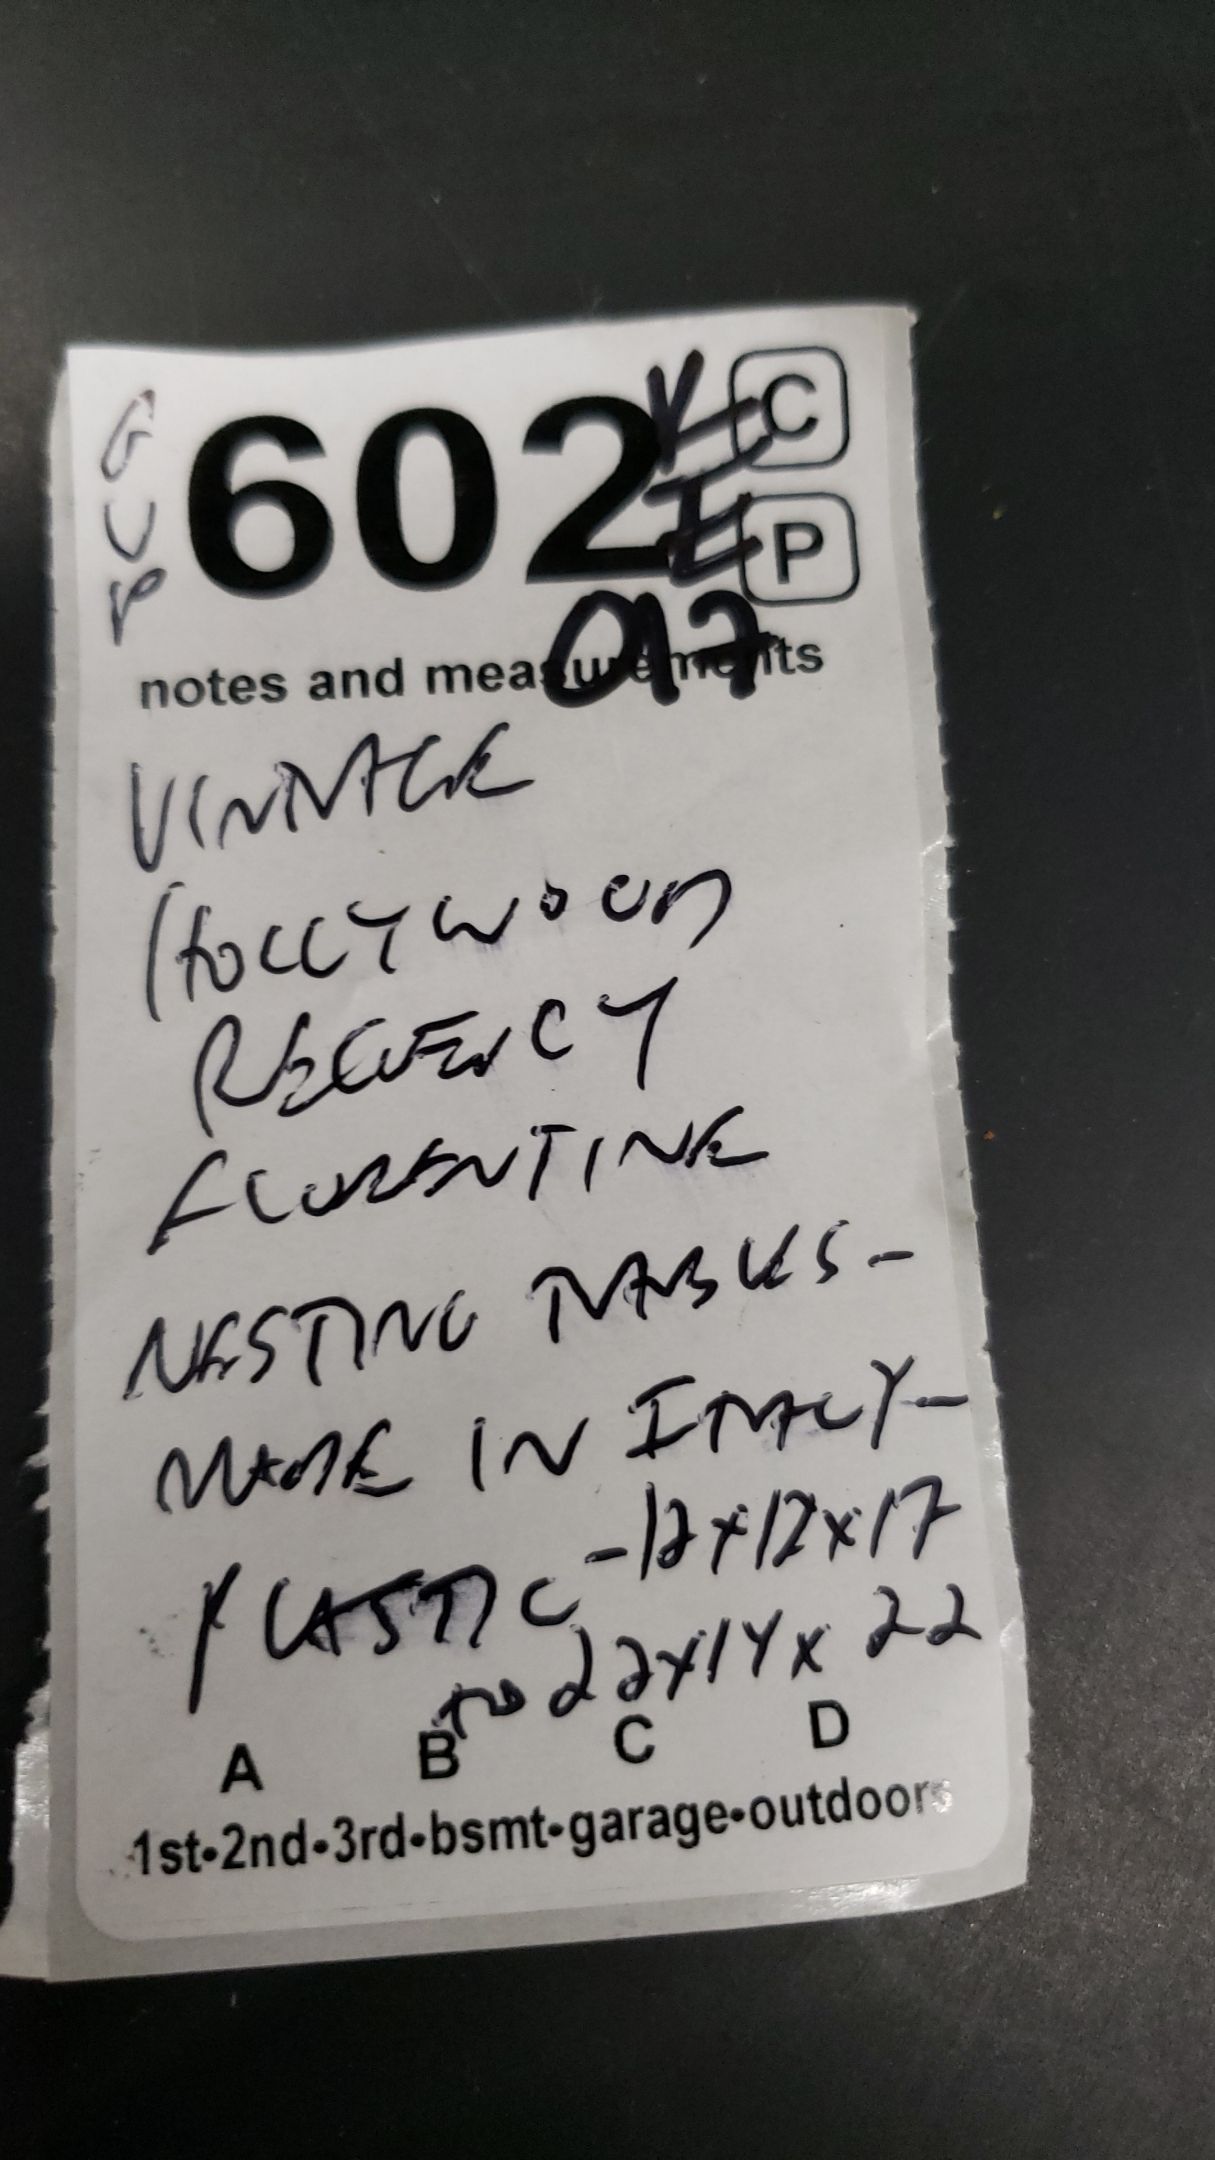 GVP
602
C
P
017
notes and measurements
VINTAGE
HOLLYWOOD
REGENCY
FLORENTINE
NESTING TABLES-
MADE IN ITALY-
PLASTIC -12x12x17
TO 22x14x22
A B C D
1st•2nd•3rd•bsmt•garage•outdoors